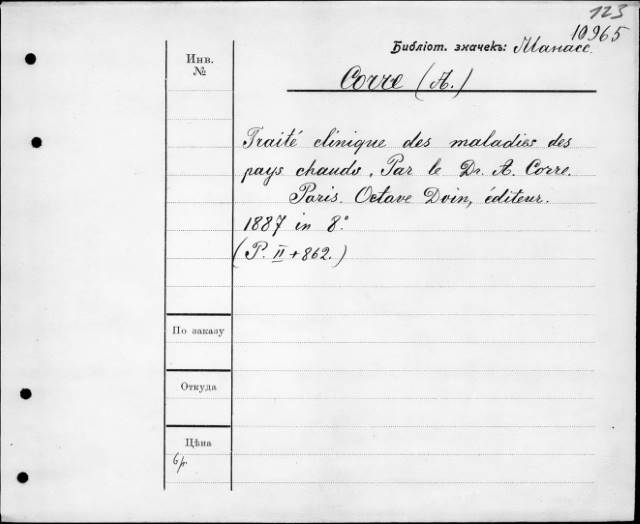 123
10965
Библіот. значекъ: Манасс.
Инв.
№
Corre (A.)
Traité clinique des maladies des
pays chauds. Par le Dr. A. Corre.
Paris. Octave Doin, éditeur.
1887 in 8°
(P. II + 862.)
По заказу
Откуда
Цѣна